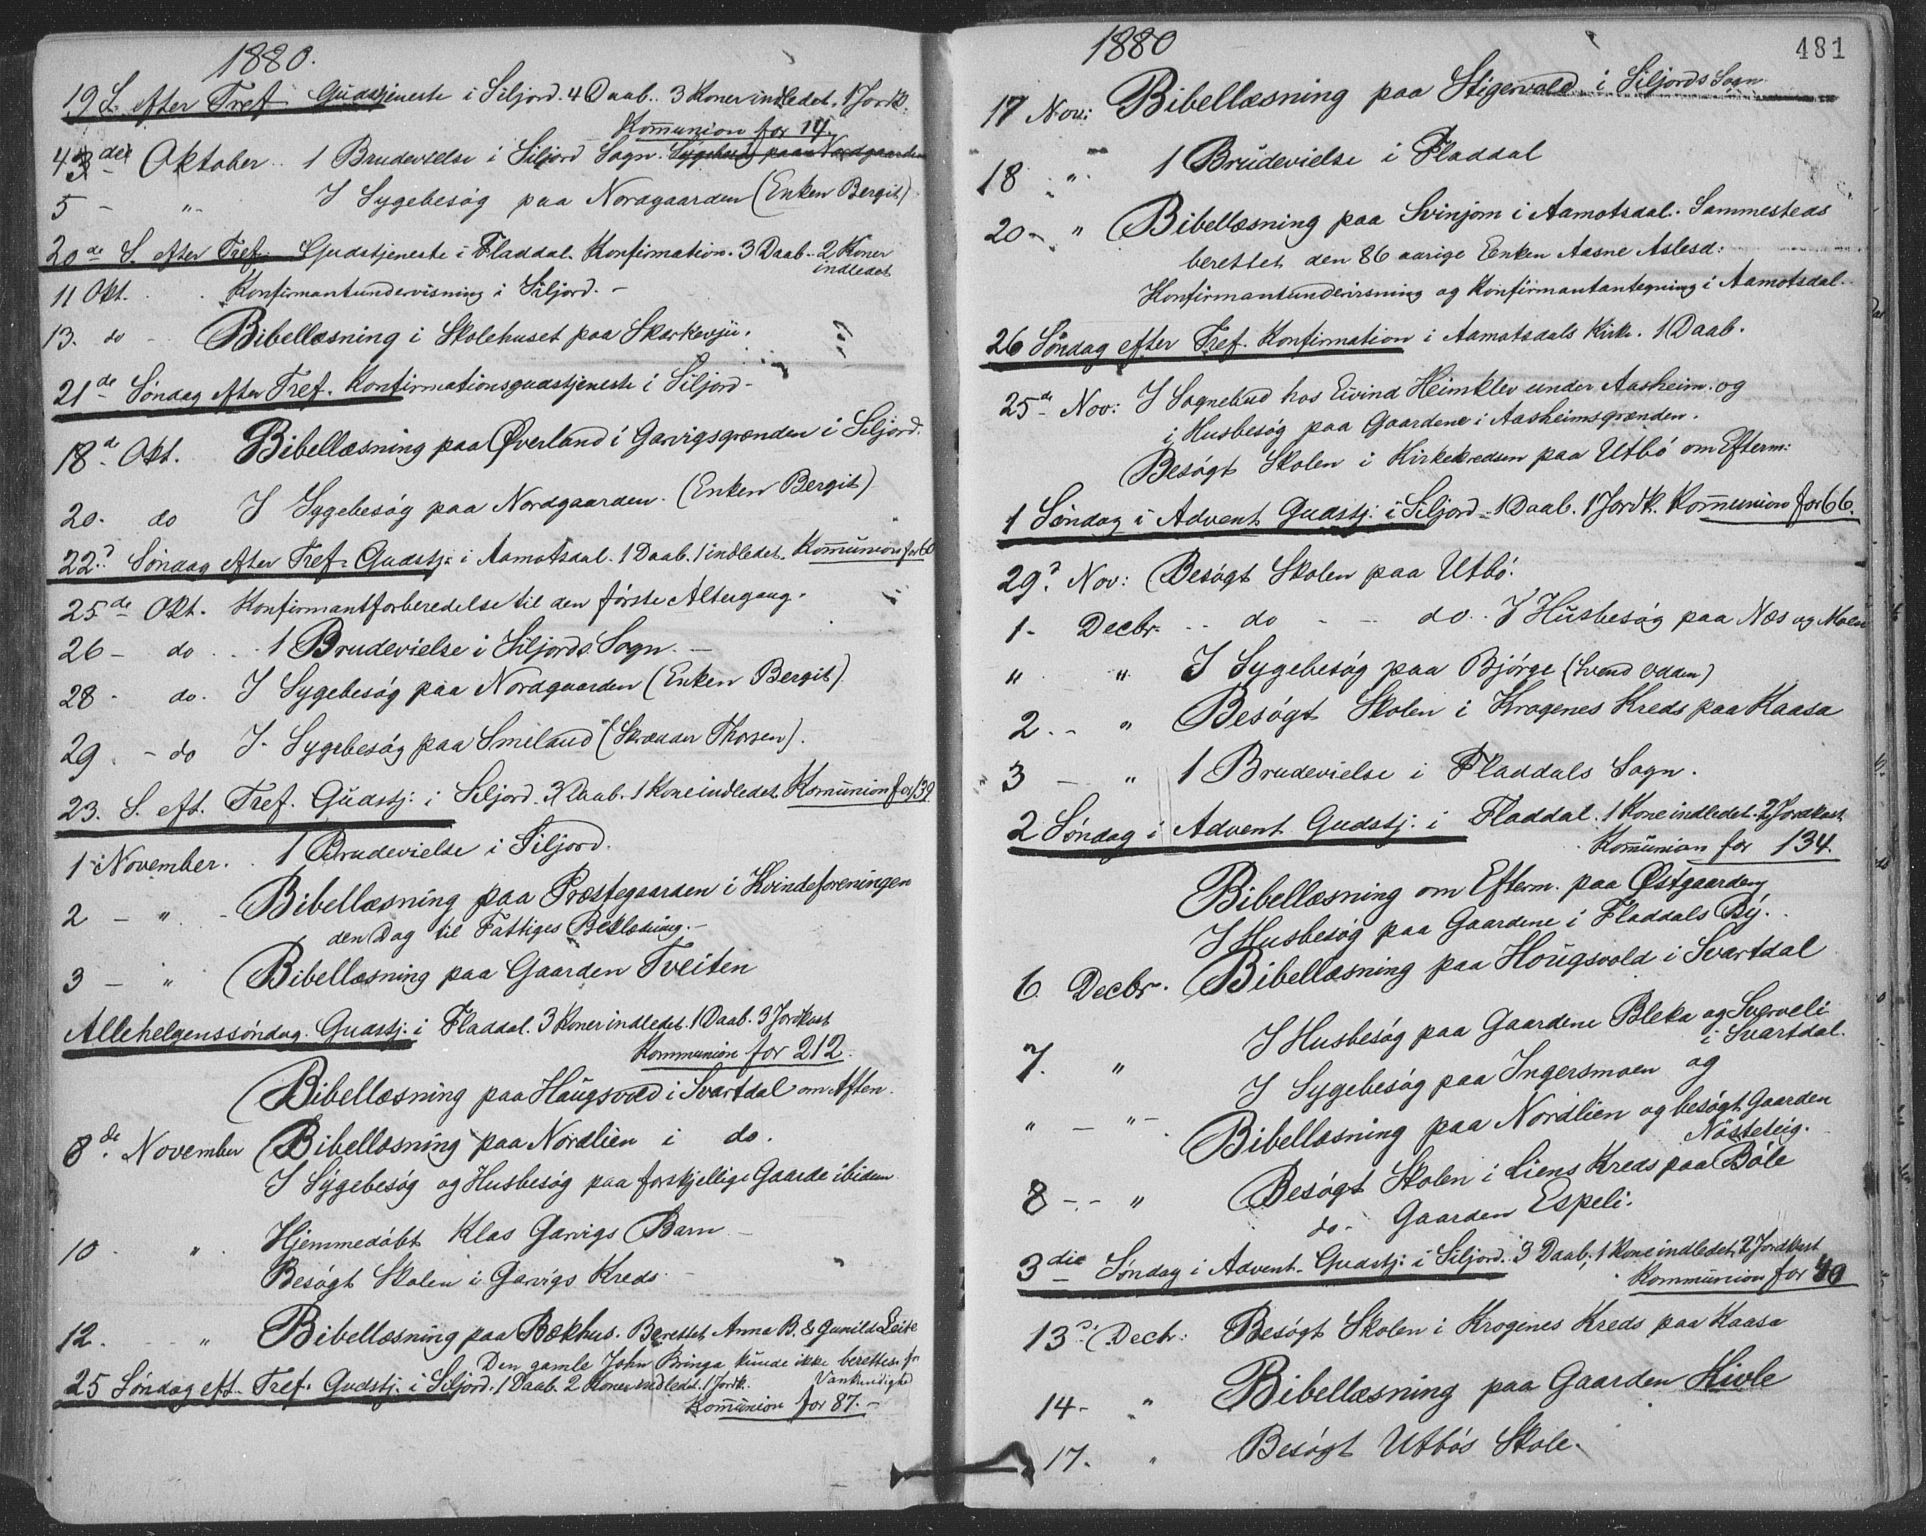 1880.
19 S. efter Tref. Gudstjeneste i Siljord. 4 Daab. 3 Koner indledet. 1 Jordk.
Kommunion for 14.
4 de Oktober 1 Brudevielse i Siljord Sogn. Sygebesøg paa Nordgaarden
5 - " - I Sygebesøg paa Nordgaarden (Enken Bergit)
20de S. efter Tref. Gudstjeneste i Fladdal. Konfirmation. 3 Daab. 2 Koner
indledet
11 Okt. Konfirmantundervisning i Siljord. -
13. do - Bibellæsning i Skolehuset paa
21de Søndag efter Tref. Konfirmationsgudstjeneste i Siljord -
18d. Okt. Bibellæsning paa Øverland i Garvigsgrænden i Siljord.
20. do I Sygebesøg paa Nordgaarden. (Enken Bergit)
22d Søndag efter Tref. Gudstj: i Aamotsdal. 1 Daab. 1 indledet. Kommunion for 60
25de Okt. Konfirmantforberedelse til den første Altergang.
26 - do. 1 Brudevielse i Siljords Sogn. -
28 - do. I Sygebesøg paa Nordgaarden (Enken Bergit).
29 - do I Sygebesøg paa Smeland (Skrædder Thorsen).
23. S. eft. Tref. Gudstj: i Siljord. 3 Daab. 1 Kone indledet. Kommunion for 139
1 November. 1 Brudevielse i Siljord.
2 - " - Bibellæsning paa Præstegaarden i Kvindeforeningen
den Dag til Fattiges Beklædning. -
3 - " Bibellæsning paa Gaarden Tveiten
Allehelgenssøndag. Gudstj: i Fladdal. 3 Koner indledet. 1 Daab. 3 Jordkast
Kommunion for 212.
Bibellæsning paa Haugsvold i Svartdal om Aften.
8de November Bibellæsning paa Nordlien i do.
I Sygebesøg og Husbesøg paa forskjellige Gaarde ibidem
10 - " . Hjemmedøbt Klas Garvigs Barn -
Besøgt Skolen i Garvigs Kreds. -
12. - " Bibellæsning paa Bækhus. Berettet Anna B. & Gunild Leite
Den gamle John Bringa kunde ikke berettes for
Vankundighed
25 Søndag eft. Tref. Gudstj. i Siljord. 1 Daab. 2 Koner indledet. 1 Jordk.
Kommunion for 87. -
1880
481
17 Nov: Bibellæsning paa Stigervold i Siljords Sogn
18 " 1 Brudevielse i Fladdal
20 - " Bibellæsning paa Svinjom i Aamotsdal. Sammesteds
berettet den 86 aarige Enken Aasne Aslesd:
Konfirmantundervisning og Konfirmantantegning i Aamotsdal.
26 Søndag efter Tref. Konfirmation i Aamotsdals Kirke. 1 Daab.
25de Nov: I Sognebud hos Eivind Heimklev under Aasheim. og
i Husbesøg paa Gaardene i Aasheimsgrænden.
Besøgt Skolen i Kirkekredsen paa Utbö om Efterm:
1 Søndag i Advent Gudstj: i Siljord - 1 Daab. 1 Jordk. Kommunion for 66.
29d. Nov: Besøgt Skolen paa Utbö.
1 - Decbr. - do - do. I Husbesøg paa Næs og Moen
" " I Sygebesøg paa Bjørge (Svend Odden)
2. - " Besøgt Skolen i Krogenes Kreds paa Kaasa
3 - " 1 Brudevielse i Fladdals Sogn.
2 Søndag i Advent Gudstj: i Fladdal. 1 Kone indledet. 2 Jordkast
Kommunion for 134.
Bibellæsning om Efterm. paa Østgaarden
I Husbesøg paa Gaardene i Fladdals By.
6 Decbr. Bibellæsning paa Hougsvold i Svartdal
7. " I Husbesøg paa Gaardene Bleka og Sverveli
i Svartdal.
I Sygebesøg paa Ingersmoen og
" - " - Bibellæsning paa Nordlien og besøgt Gaarden
Nösteteig.
8 - - " Besøgt Skolen i Liens Kreds paa Böle
do - Gaarden Espeli.
3die Søndag i Advent - Gudstj: i Siljord. 3 Daab, 1 Kone indledet, 2 Jordkast
Kommunion for 40
13d. Decbr: Besøgt Skolen i Krogenes Kreds paa Kaasa
14 - " Bibellæsning paa Gaarden Kivle
17. " Besøgt Utbös Skole.